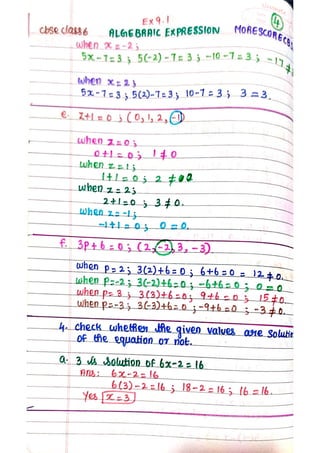 Ex 9.1
4
cbse class 6 ALGEBRAIC EXPRESSION MORESCORECBS
when x = -2 ;
5x-7=3 ; 5(-2)-7=3 ; -10-7=3 ; -17≠
when x = 2 ;
5x-7=3 ; 5(2)-7=3 ; 10-7=3 ; 3=3.
e. z+1=0 ; (0, 1, 2, -1)
when z = 0 ;
0+1=0 ; 1≠0
when z = 1 ;
1+1=0 ; 2≠0
when z = 2 ;
2+1=0 ; 3≠0.
when z = -1 ;
-1+1=0 ; 0=0.
f. 3p+6=0 ; (2, -2, 3, -3)
when p=2 ; 3(2)+6=0 ; 6+6=0 = 12≠0.
when p=-2 ; 3(-2)+6=0 ; -6+6=0 ; 0=0
when p= 3 ; 3(3)+6=0 ; 9+6=0 ; 15≠0.
when p=-3 ; 3(-3)+6=0 ; -9+6=0 ; -3≠0.
4. check whether the given values are Solution
of the equation or not.
a. 3 is solution of 6x-2=16
Ans: 6x-2=16
6(3)-2=16 ; 18-2=16 ; 16=16.
Yes x=3